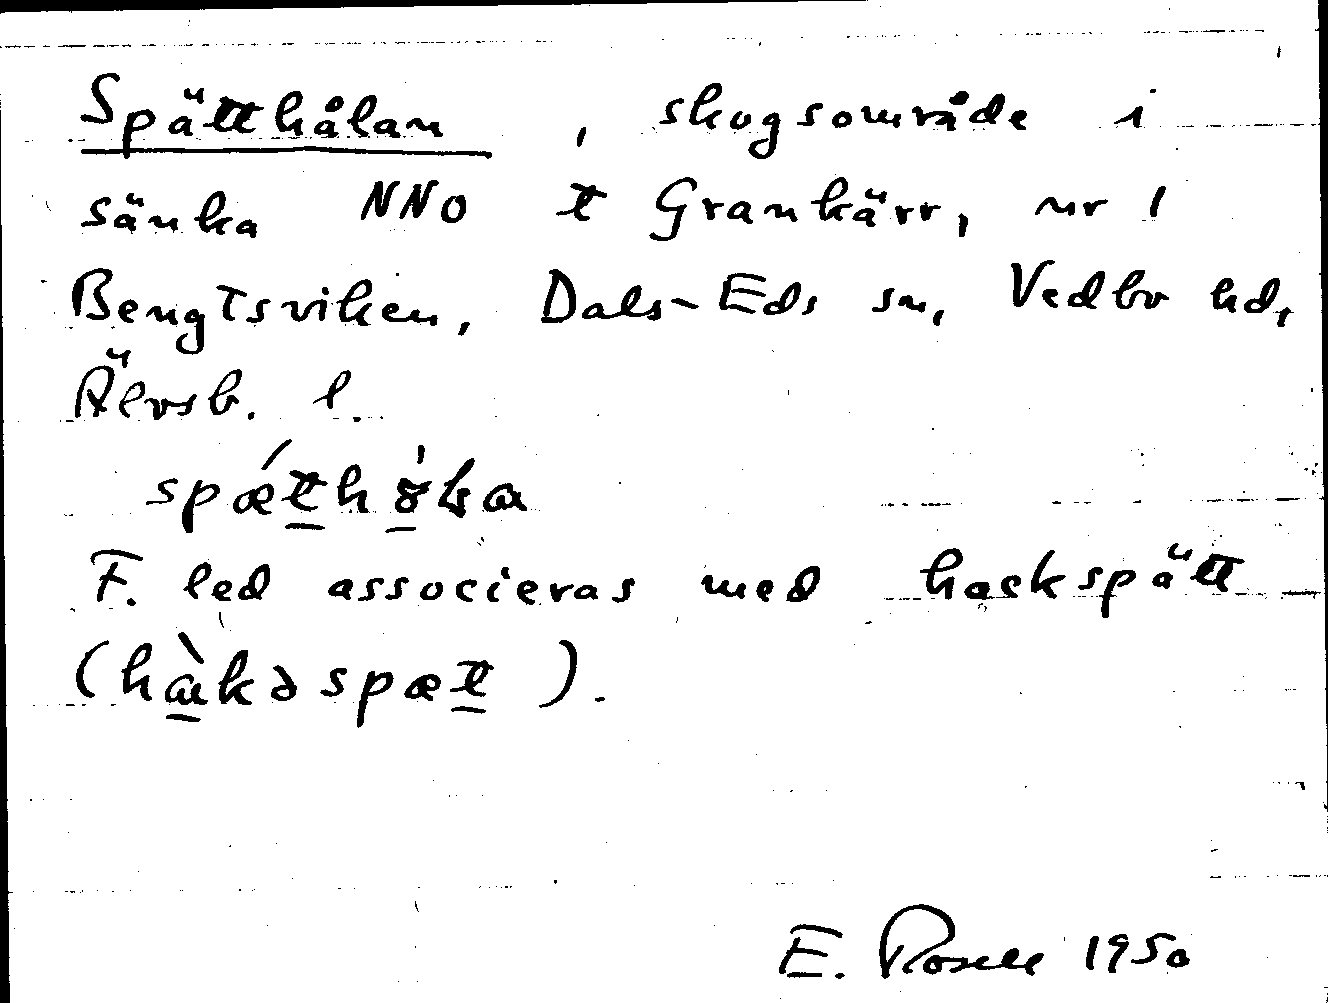 Spätthålan, skogsområde i
sänka NNO t Grankärr, nr 1
Bengtsviken, Dals-Eds sn, Vedbo hd,
Älvsb. l.
F. led associeras med hackspätt
(hàkəspæt).
E. Rosell 1950